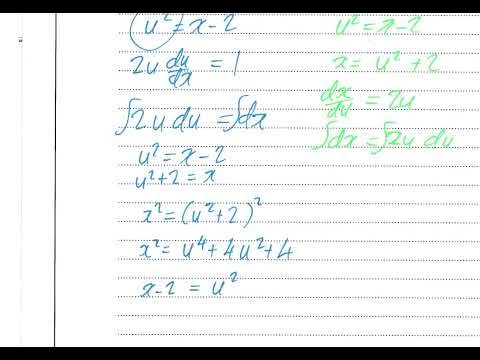 u² = x-2
2u du/dx = 1
∫2u du = ∫dx
u² = x-2
u²+2 = x
x² = (u²+2)²
x² = u⁴+4u²+4
x-2 = u²
u² = x-2
x = u²+2
dx/du = 2u
∫dx = ∫2u du